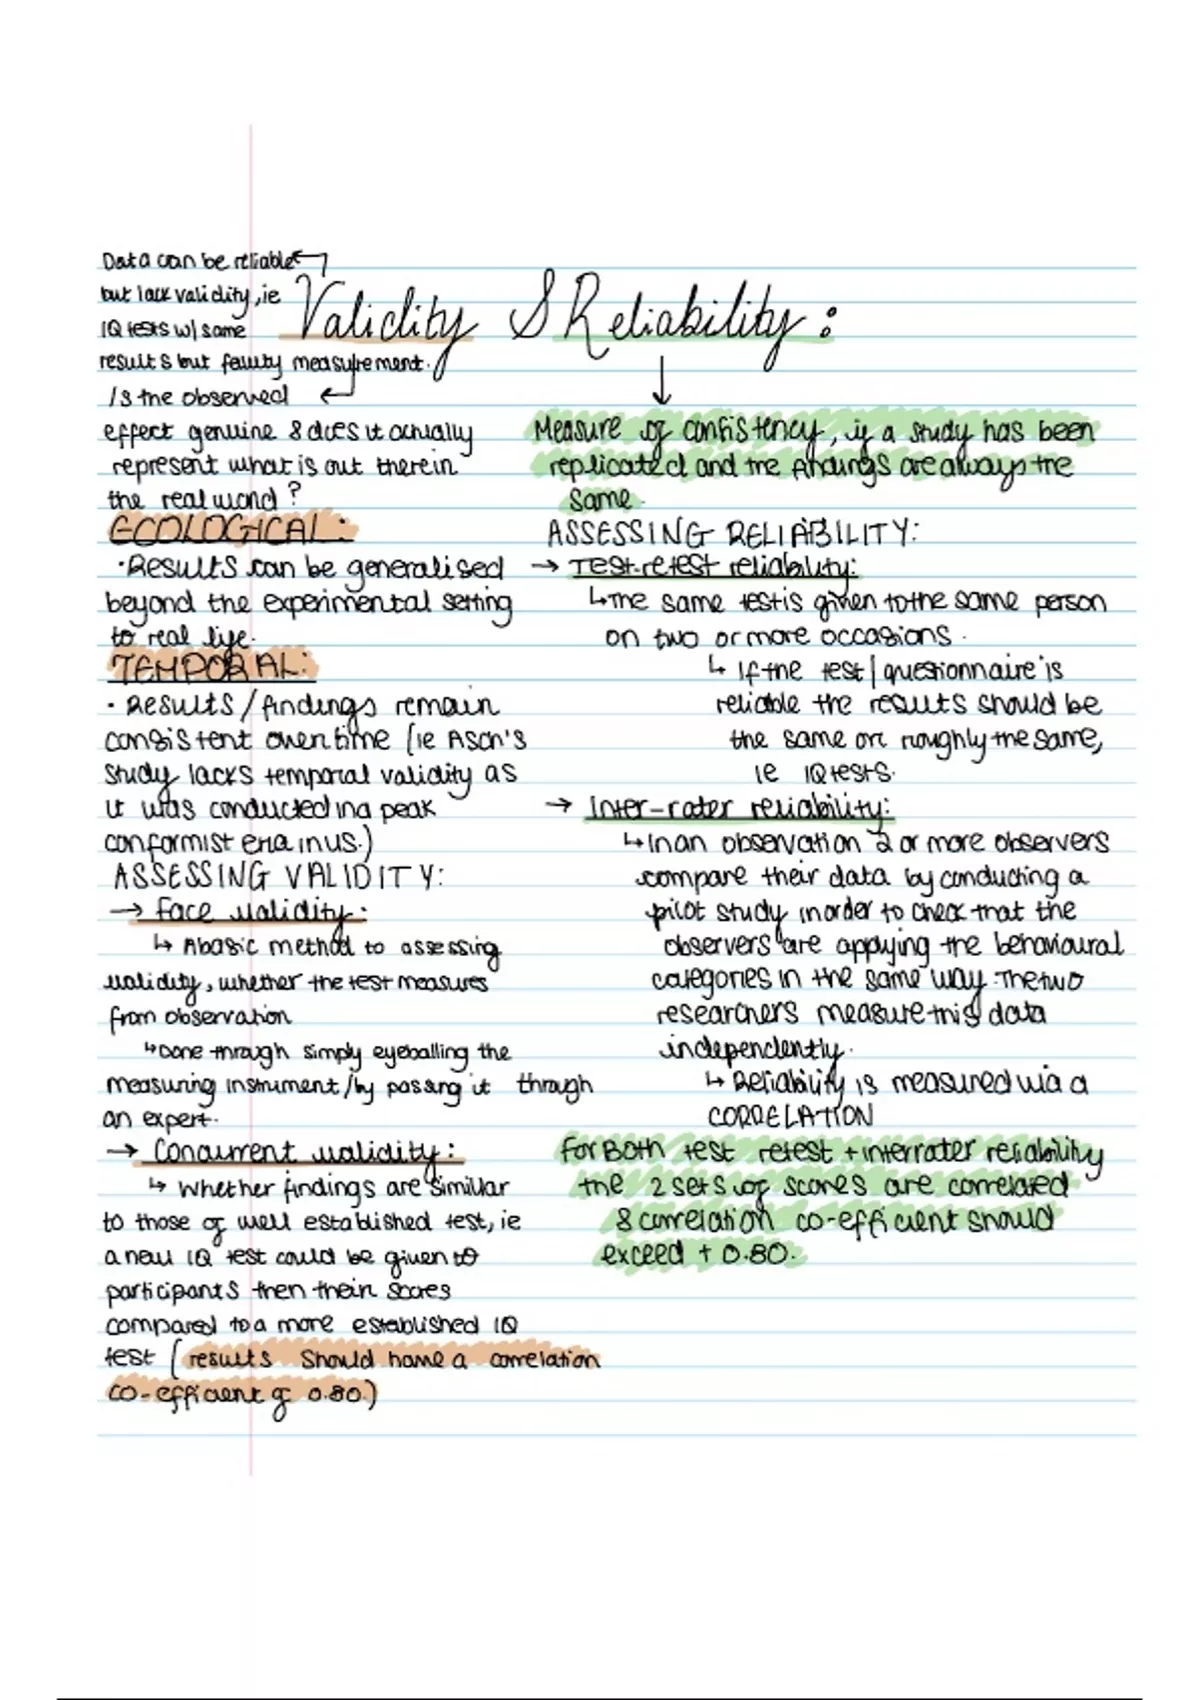 Validity & Reliability:
Data can be reliable
but lack validity, ie
IQ tests w/ same
results but faulty measurement.
Is the observed
effect genuine & does it actually
represent what is out there in
the real world?
ECOLOGICAL:
· Results can be generalised
beyond the experimental setting
to real life.
TEMPORAL:
· Results / findings remain
consistent over time (ie Asch's
study lacks temporal validity as
it was conducted in a peak
conformist era in US.)
ASSESSING VALIDITY:
→ Face validity:
↳ A basic method to assessing
validity, whether the test measures
from observation
↳ Done through simply eyeballing the
measuring instrument / by passing it through
an expert.
→ Concurrent validity:
↳ Whether findings are similar
to those of well established test, ie
a new IQ test could be given to
participants then their scores
compared to a more established IQ
test (results should have a correlation
co-efficient of 0.80.)
Measure of consistency, if a study has been
replicated and the findings are always the
same.
ASSESSING RELIABILITY:
→ Test-retest reliability:
↳ The same test is given to the same person
on two or more occasions.
↳ If the test / questionnaire is
reliable the results should be
the same or roughly the same,
ie IQ tests.
→ Inter-rater reliability:
↳ In an observation 2 or more observers
compare their data by conducting a
pilot study in order to check that the
observers are applying the behavioural
categories in the same way. The two
researchers measure this data
independently.
↳ Reliability is measured via a
CORRELATION
For BOTH test retest + interrater reliability
the 2 sets of scores are correlated
& correlation co-efficient should
exceed + 0.80.